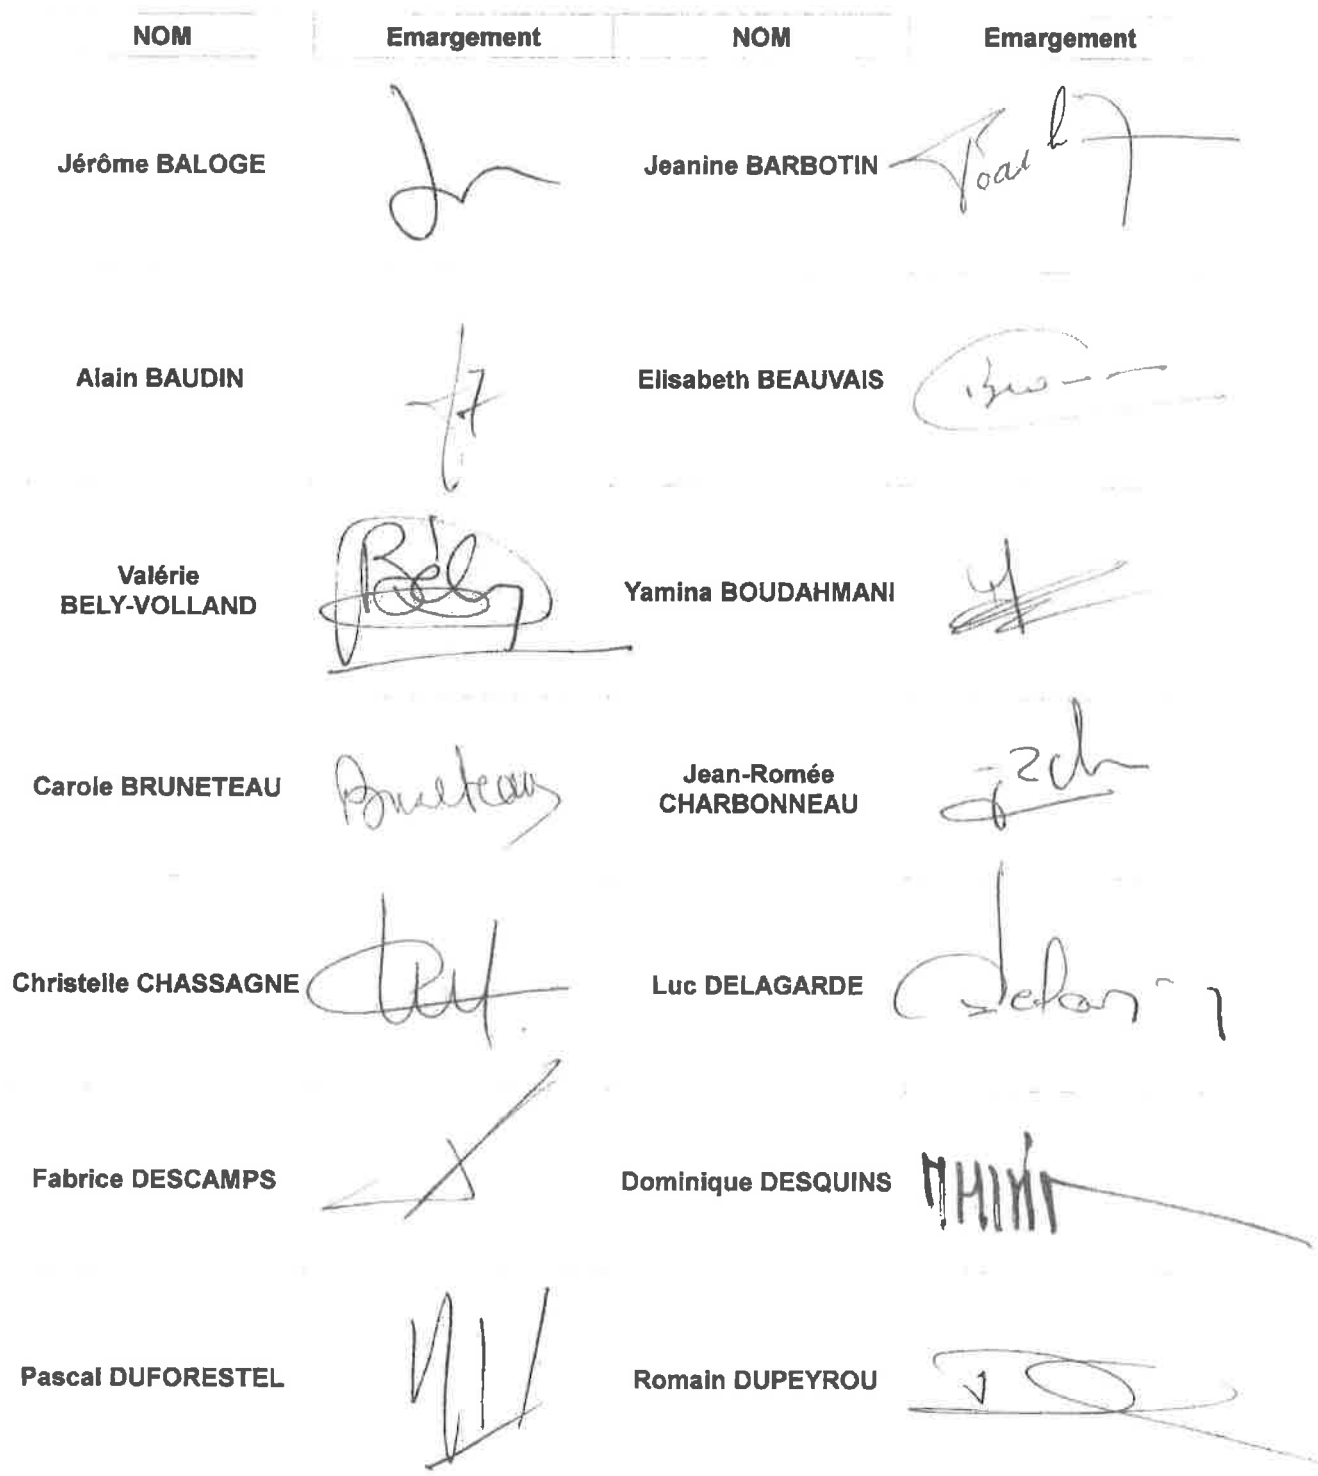 NOM Emargement NOM Emargement
Jérôme BALOGE Jeanine BARBOTIN
Alain BAUDIN Elisabeth BEAUVAIS
Valérie
BELY-VOLLAND Bély Yamina BOUDAHMANI
Carole BRUNETEAU Bruneteau Jean-Romée
CHARBONNEAU
Christelle CHASSAGNE Luc DELAGARDE
Fabrice DESCAMPS Dominique DESQUINS
Pascal DUFORESTEL Romain DUPEYROU